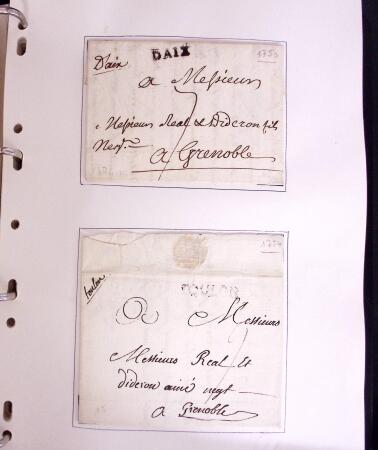 D'aix
DAIX
1753
a Messieurs
Messieurs Real & Dideron fils
Neg.ts
a Grenoble
toulon
TOULON
A Messieurs
Messieurs Real Et
dideron ainé negt
a Grenoble